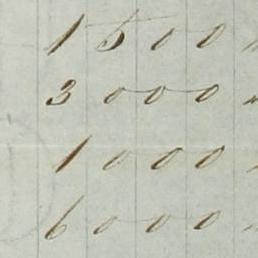 1500
3000
1000
6000